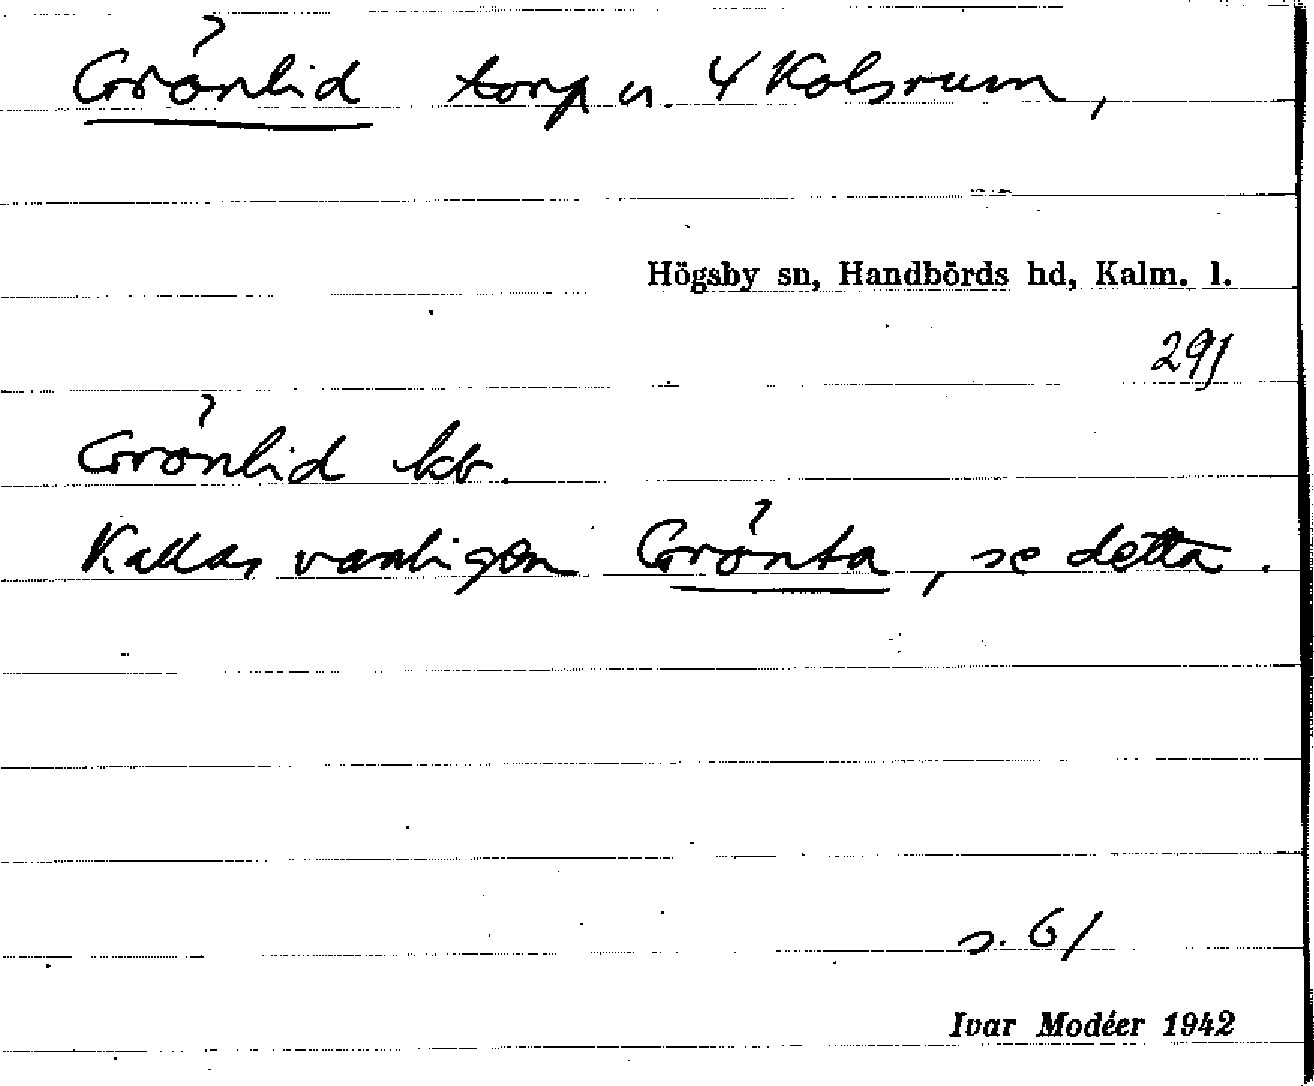 Grönlid torp u. 4 Kolsrum,
Högsby sn, Handbörds hd, Kalm. l.
291
Grönlid kb.
Kallas vanligen Grönta, se detta.
s. 61
Ivar Modéer 1942